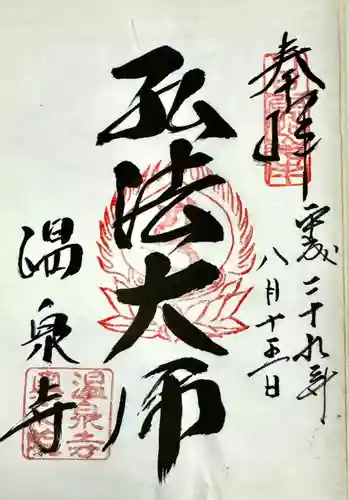 奉拝
平成二十九年
八月十五日
弘法大师
温泉寺
温泉寺